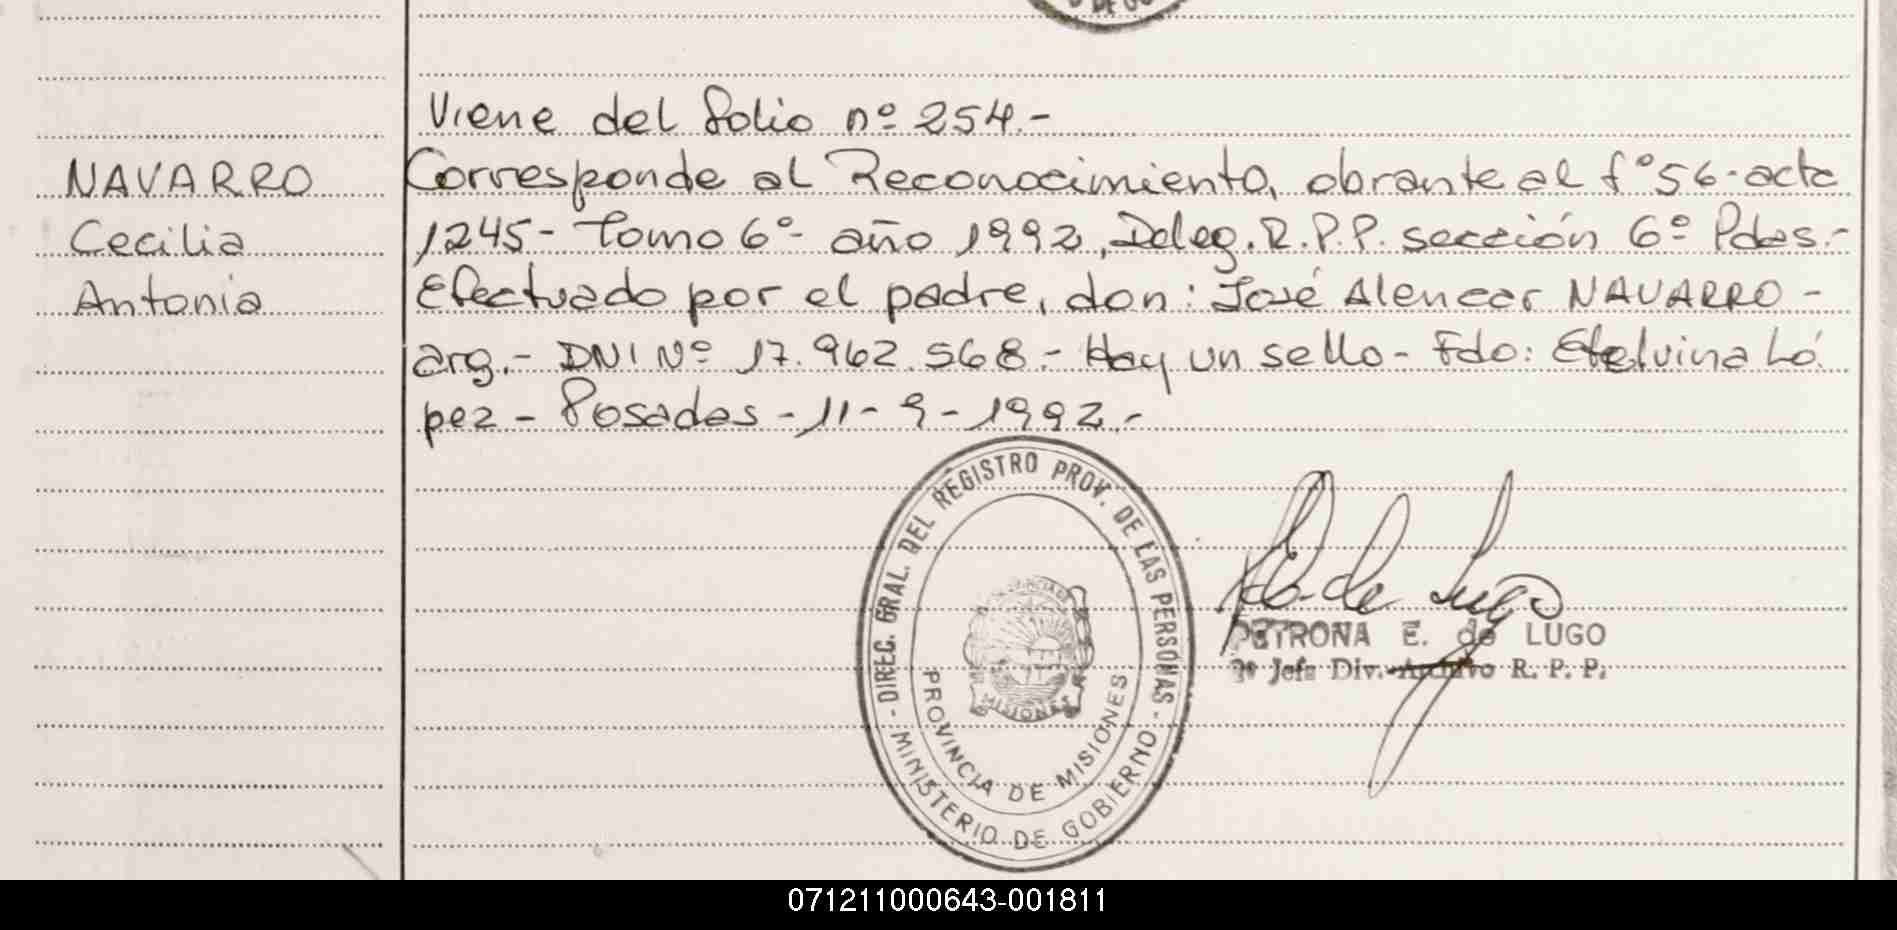 Viene del folio nº 254.-
NAVARRO
Cecilia
Antonia
Corresponde al Reconocimiento, obrante al fº56-acta
1245- Tomo 6º- año 1992, Deleg. R.P.P. sección 6º Pdas.-
Efectuado por el padre, don: José Alencar NAVARRO -
arg.- DNI Nº 17.962.568.- Hay un sello- Fdo: Etelvina Ló
pez- Posadas-11-9-1992.-
- DIREC. GRAL. DEL REGISTRO PROV. DE LAS PERSONAS -
MINISTERIO DE GOBIERNO
PROVINCIA DE MISIONES
MISIONES
PETRONA E. de LUGO
Jefa Div. Archivo R. P. P.
071211000643-001811